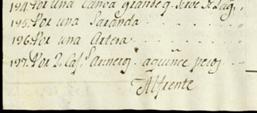 194. Por una Canoa grande q. sirve de
195. Por una Zaranda
196. Por una Artesa
197. Por 2 Carneros, a quince pesos
Al frente